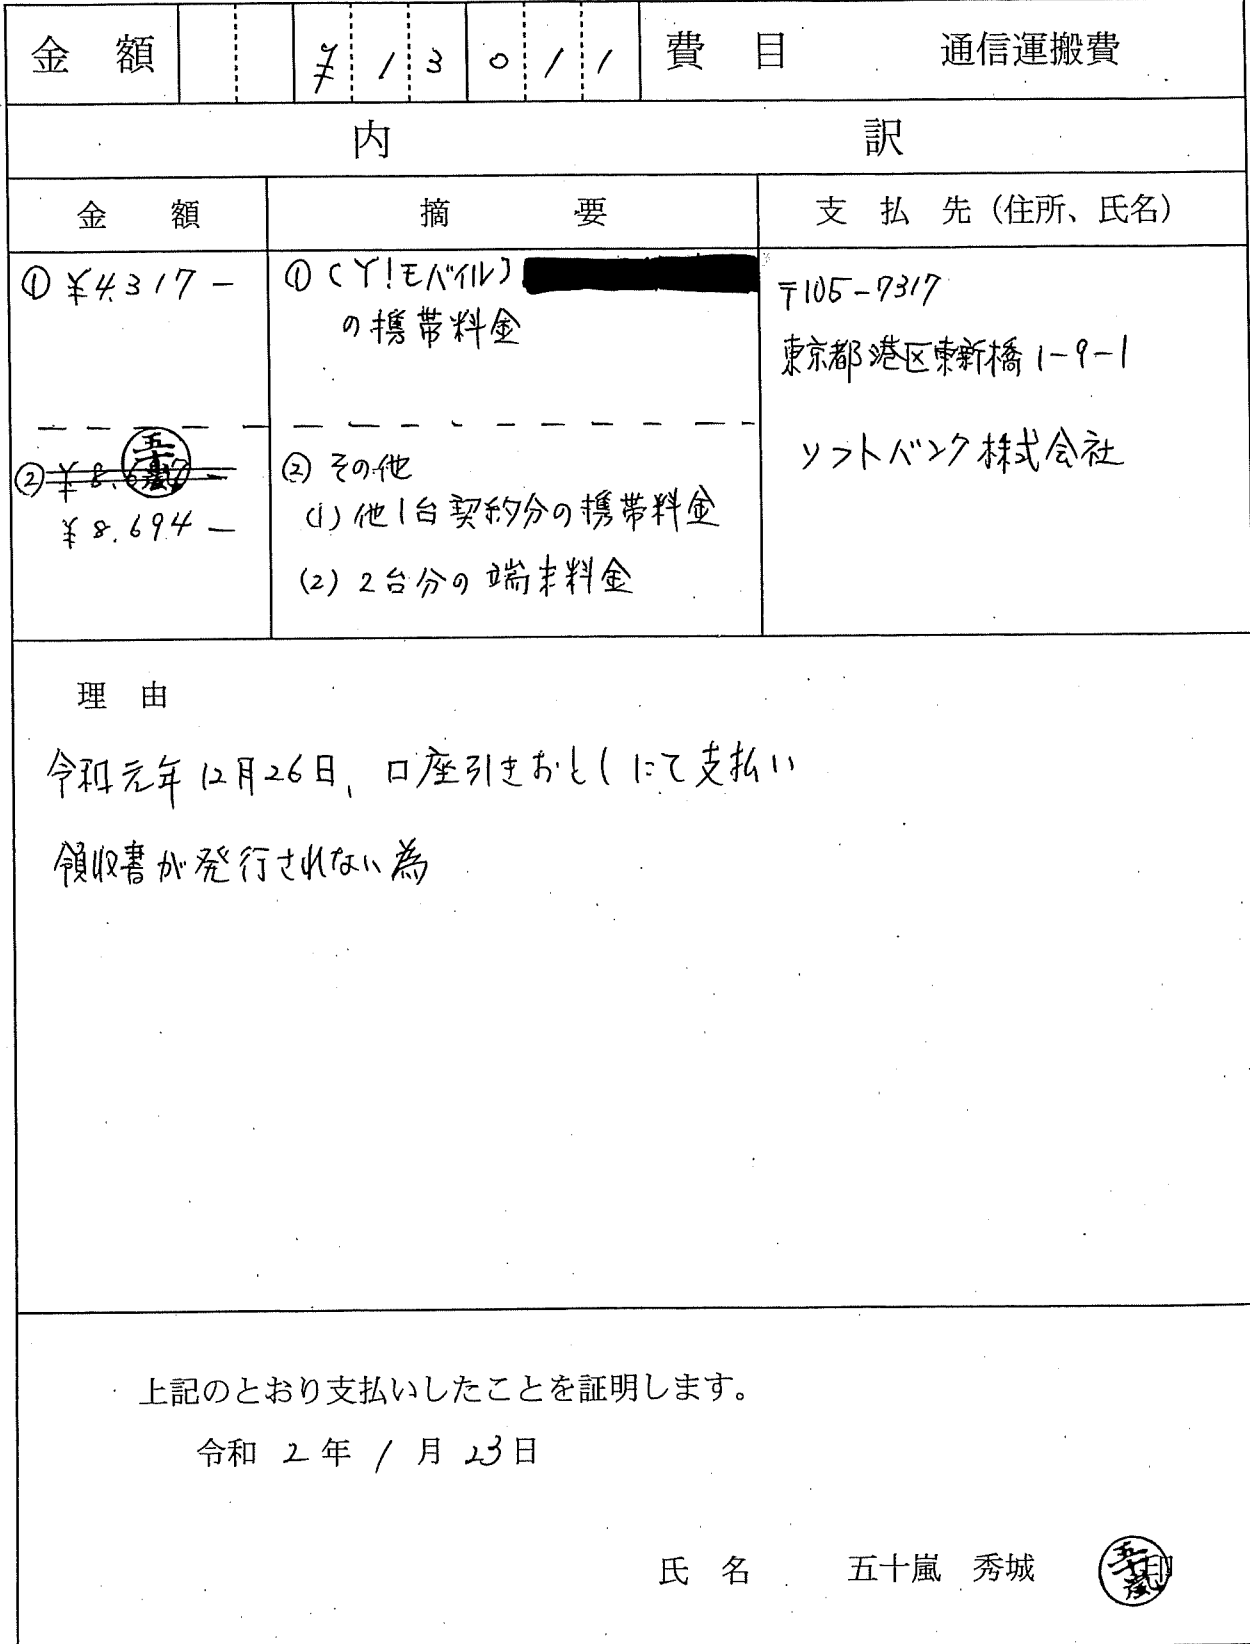 金額 ¥13011 費目 通信運搬費
内訳
金額 摘要 支払先(住所、氏名)
①¥4.317- ①(Y!モバイル)
の携帯料金
〒105-7317
東京都港区東新橋1-9-1
ソフトバンク株式会社
五十嵐
② ②その他
¥8.694- (1)他1台契約分の携帯料金
(2)2台分の端末料金
理由
令和元年12月26日、口座引きおとしにて支払い
領収書が発行されない為
上記のとおり支払いしたことを証明します。
令和2年1月23日
氏名 五十嵐 秀城 印
五十嵐